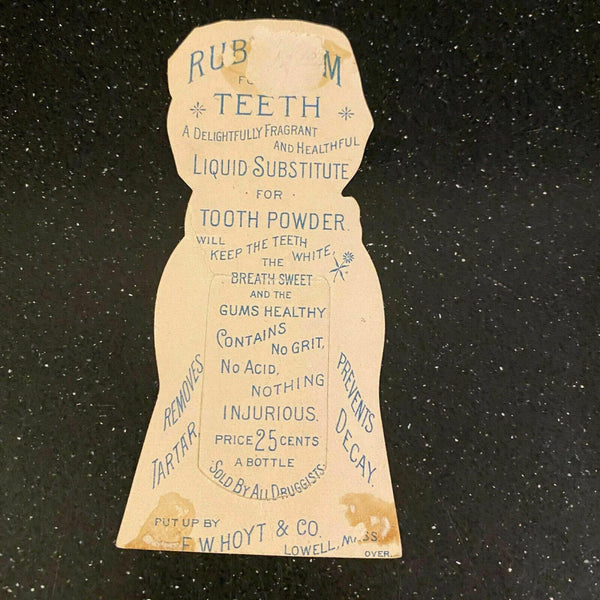 RUB M
FO
TEETH
A DELIGHTFULLY FRAGRANT
AND HEALTHFUL
LIQUID SUBSTITUTE
FOR
TOOTH POWDER.
WILL
KEEP THE TEETH
THE WHITE,
BREATH SWEET
AND THE
GUMS HEALTHY
CONTAINS
NO GRIT,
NO ACID,
NOTHING
INJURIOUS.
REMOVES
TARTAR.
PREVENTS
DECAY.
PRICE 25 CENTS
A BOTTLE
SOLD BY ALL DRUGGISTS.
PUT UP BY
E W HOYT & CO.
LOWELL, MASS
OVER.